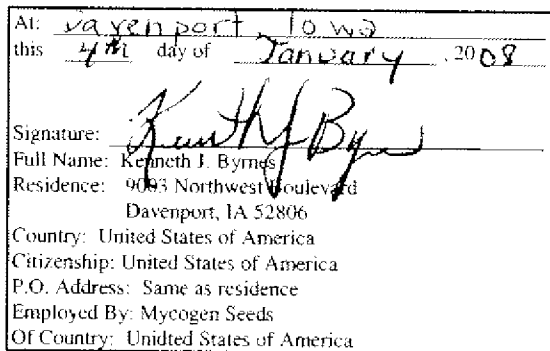 At: Davenport Iowa
this 4th day of January, 2008
Signature: Kenneth J Byrnes
Full Name: Kenneth J. Byrnes
Residence: 9093 Northwest Boulevard
Davenport, IA 52806
Country: United States of America
Citizenship: United States of America
P.O. Address: Same as residence
Employed By: Mycogen Seeds
Of Country: Unidted States of America